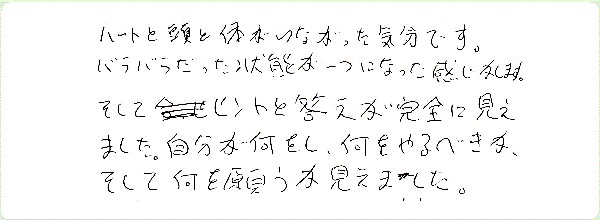 ハートと頭と体がつながった気分です。
バラバラだった状態が一つになった感じがします。
そして ヒントと答えが完全に見え
ました。自分が何をし、何をやるべきか、
そして何を願うか見えました。